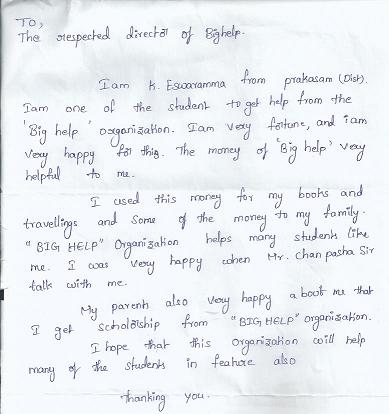 TO,
The respected director of Bighelp.
Iam K. Eswaramma from prakasam (Dist).
Iam one of the student to get help from the
'Big help' organization. Iam very fortune, and iam
very happy for this. The money of 'Big help' very
helpful to me.
I used this money for my books and
travellings and some of the money to my family.
"BIG HELP" Organization helps many students like
me. I was very happy when Mr. Chan pasha Sir
talk with me.
My parents also very happy about me that
I get scholarship from "BIG HELP" organization.
I hope that this organization will help
many of the students in feature also
thanking you.